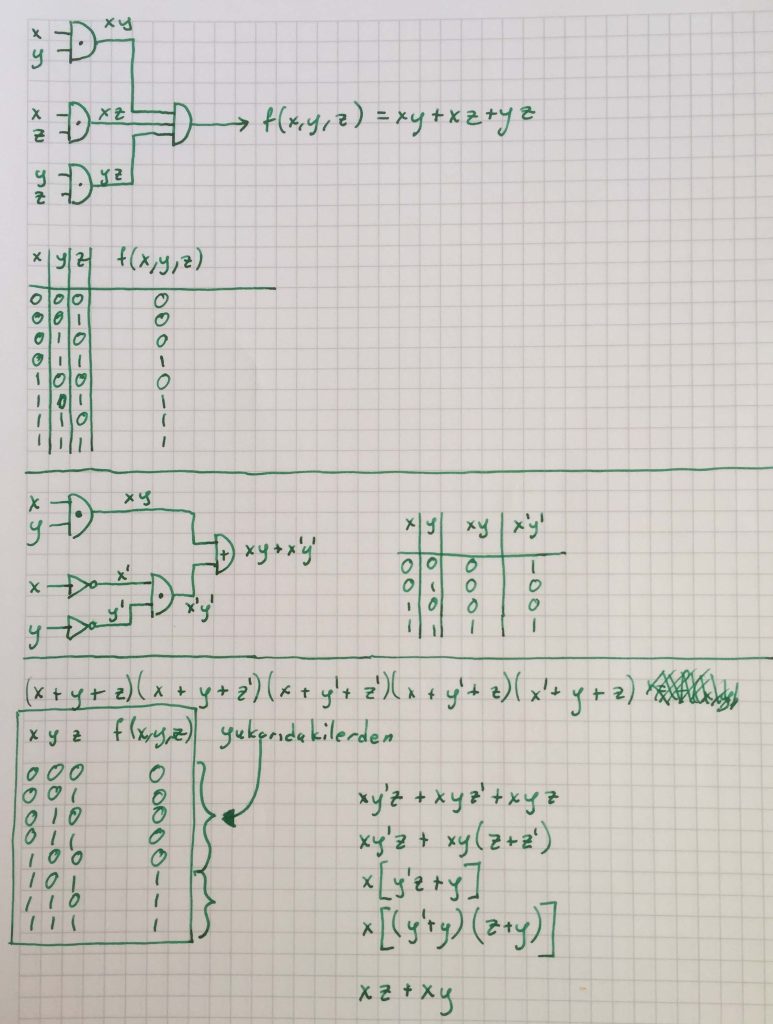 x
y
xy
x
z
xz
f(x,y,z) = xy+xz+yz
y
z
yz
x y z f(x,y,z)
0 0 0 0
0 0 1 0
0 1 0 0
0 1 1 1
1 0 0 0
1 0 1 1
1 1 0 1
1 1 1 1
x
y
xy
+ xy+x'y'
x
x'
y
y'
x'y'
x y xy x'y'
0 0 0 1
0 1 0 0
1 0 0 0
1 1 1 1
(x+y+z)(x+y+z')(x+y'+z')(x+y'+z)(x'+y+z)
x y z f(x,y,z) yukarıdakilerden
0 0 0 0
0 0 1 0
0 1 0 0
0 1 1 0
1 0 0 0
1 0 1 1
1 1 0 1
1 1 1 1
xy'z + xyz' + xyz
xy'z + xy(z+z')
x[y'z+y]
x[(y'+y)(z+y)]
xz + xy